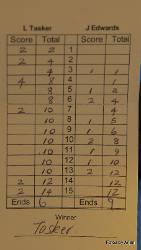 L Tasker J Edwards
Score Total Score Total
2 2 1
2 4 2
4 3 1 1
4 8 4 1
8 5 1 2
8 6 2 4
2 10 7 4
10 8 1 5
10 9 1 6
10 10 2 8
10 11 1 9
10 12 1 10
10 13 2 12
2 12 14 12
2 14 15 12
Ends 6 Ends 9
Winner
Tasker